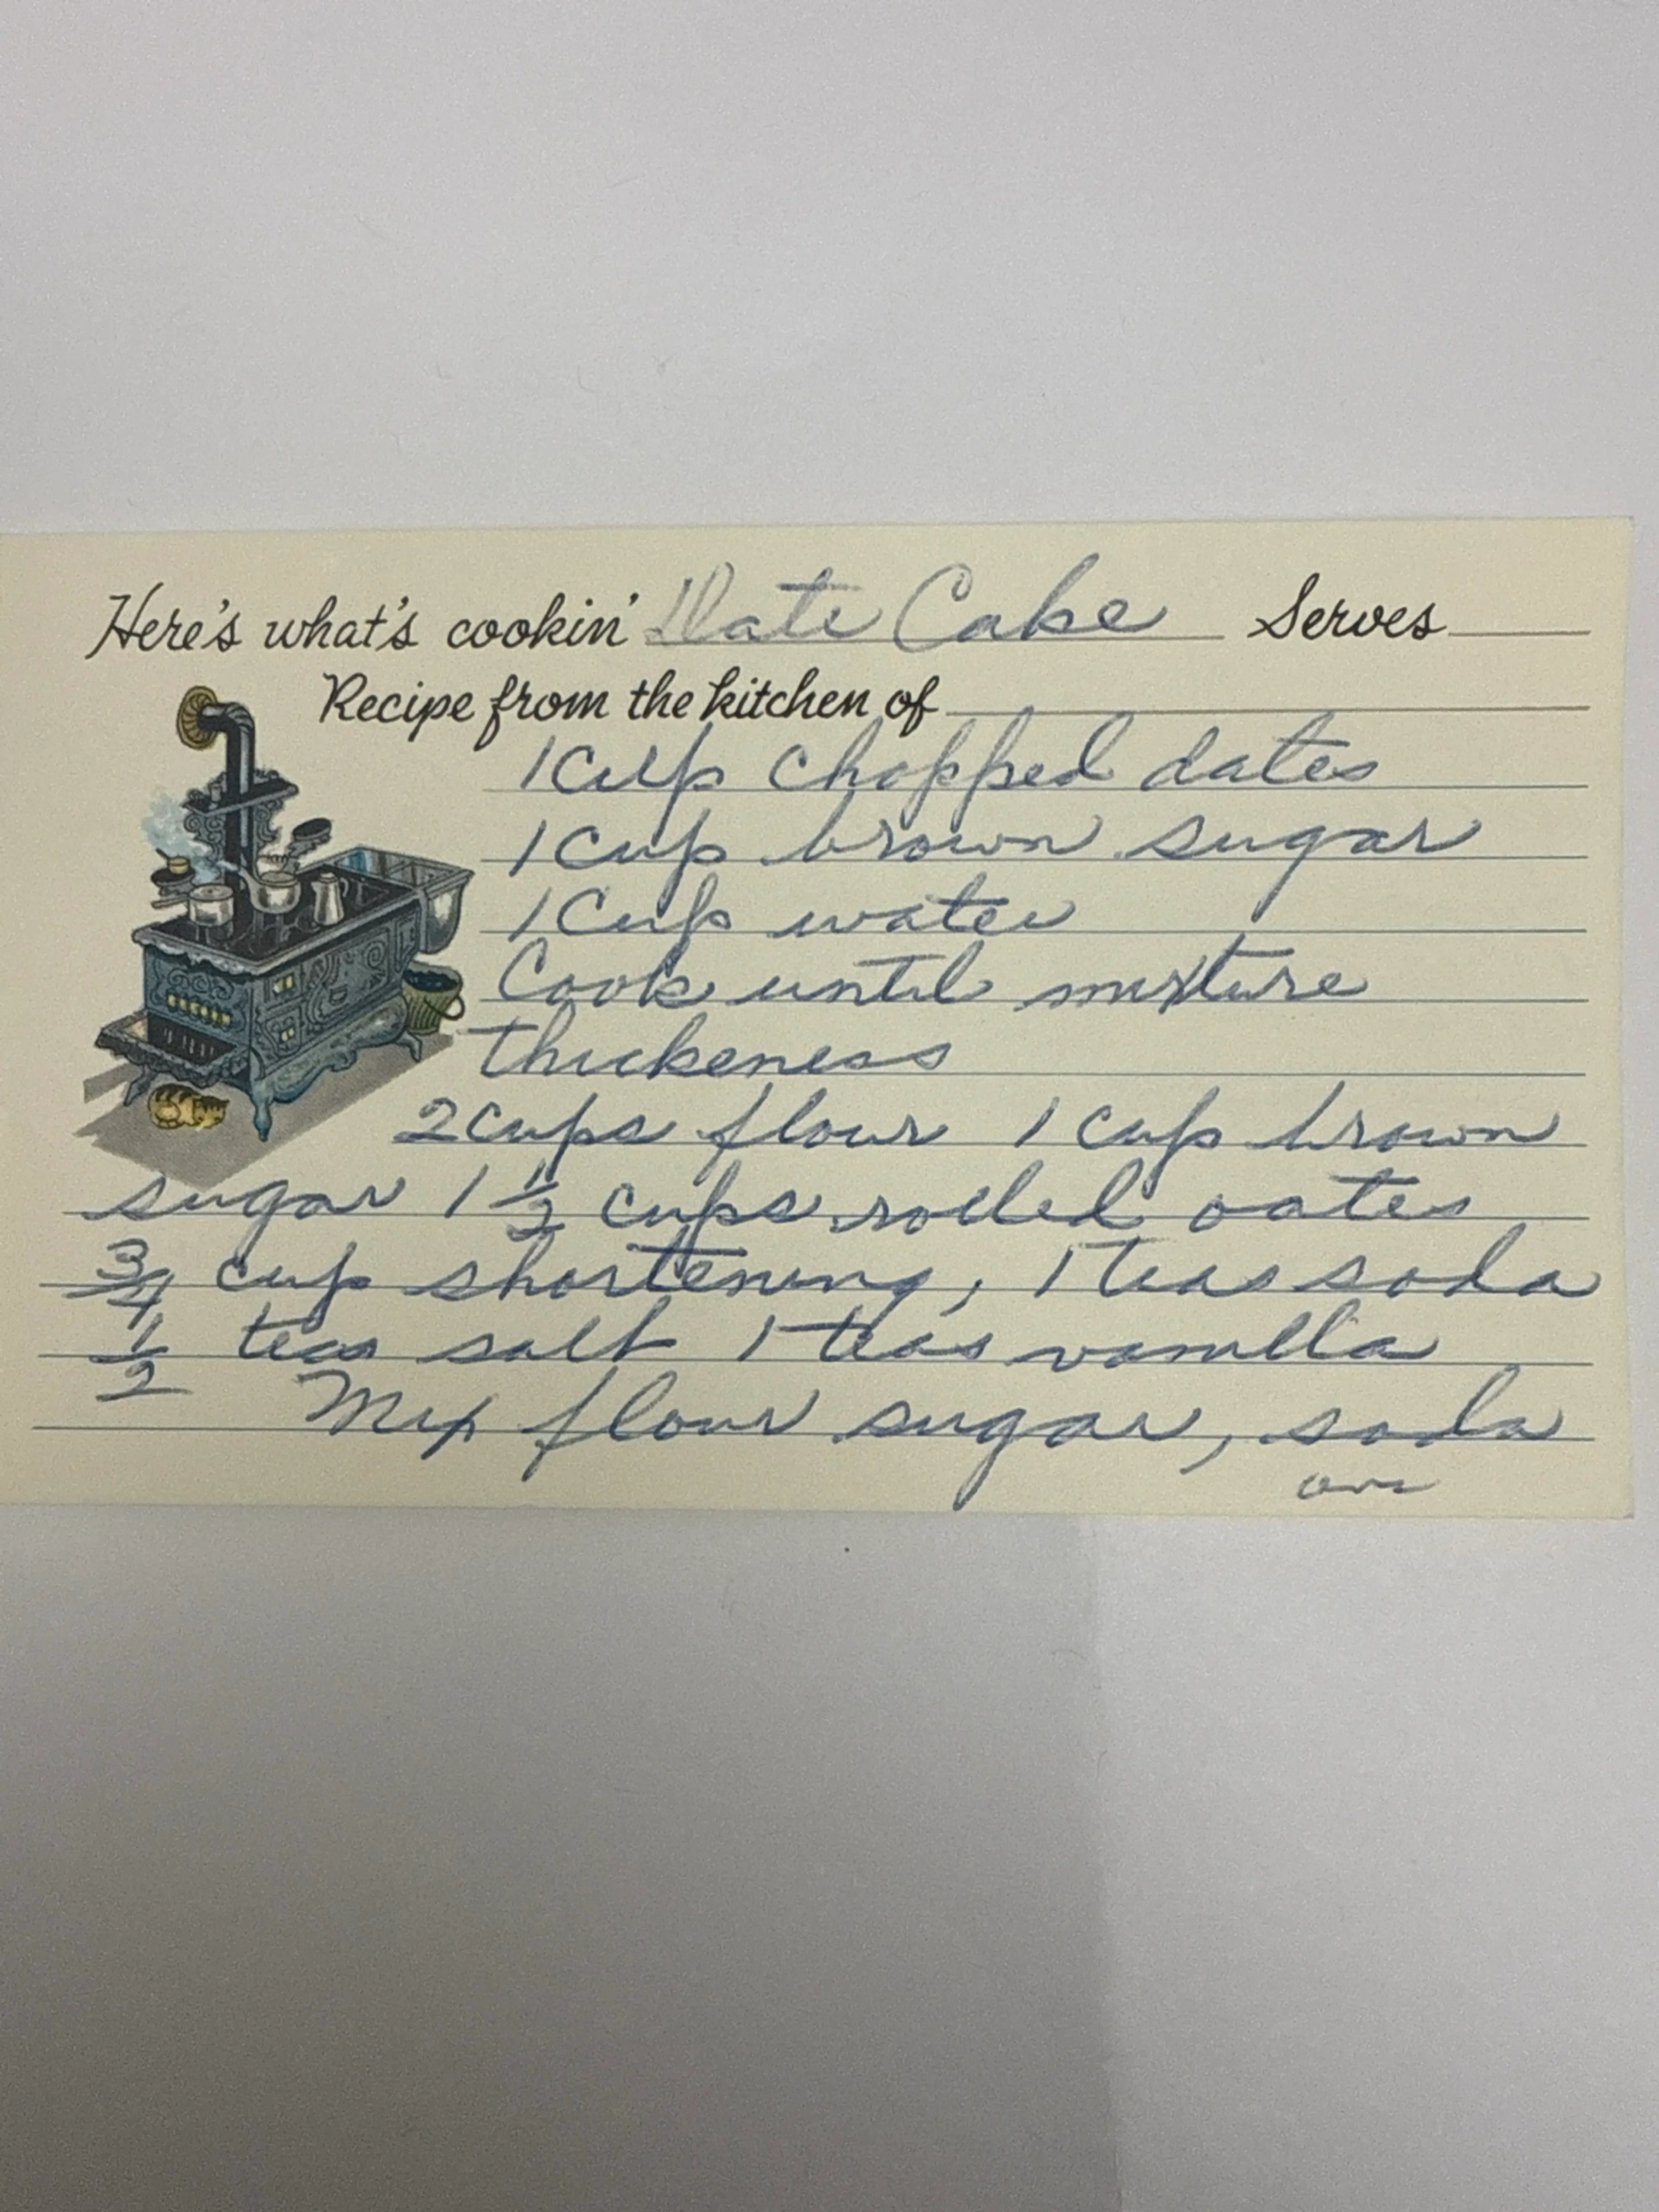 Here's what's cookin' Date Cake Serves
Recipe from the kitchen of
1 cup chopped dates
1 cup brown sugar
1 cup water
Cook until mixture
thickeness
2 cups flour 1 cup brown
sugar 1 1/2 cups rolled oates
3/4 cup shortening, 1 teas soda
1/2 teas salt 1 teas vanilla
Mix flour sugar, soda